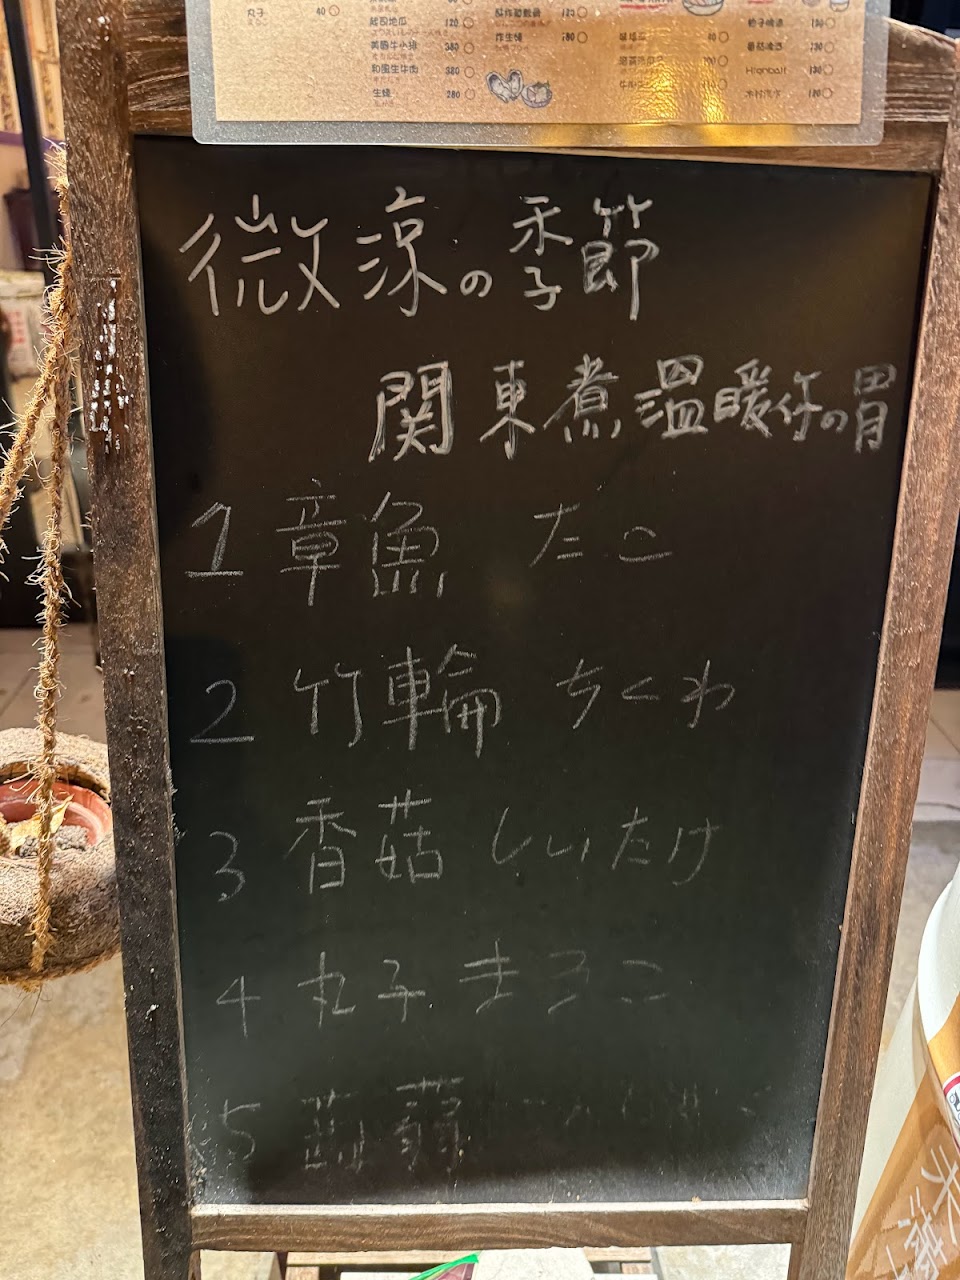 丸子 40
起司地瓜 120
美國牛小排 380
和風生牛肉 380
生蠔 280
炸生蠔 180
Highball 130
微涼の季節
関東煮温暖你の胃
1 章魚 たこ
2 竹輪 ちくわ
3 香菇 しいたけ
4 丸子 まろこ
5 蒟蒻